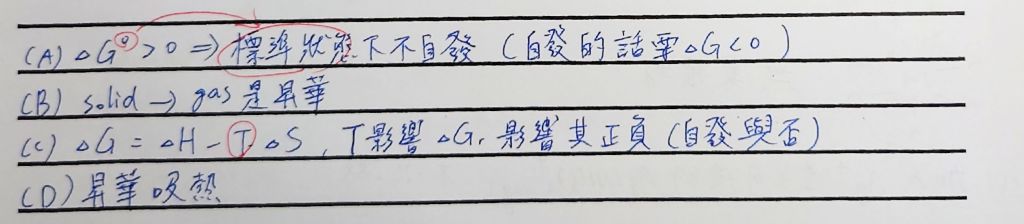 (A) △G° > 0 ⇒ 標準狀態下不自發 (自發的話需△G<0)
(B) solid → gas 是昇華
(C) △G = △H - T△S, T影響△G, 影響其正負(自發與否)
(D) 昇華吸熱